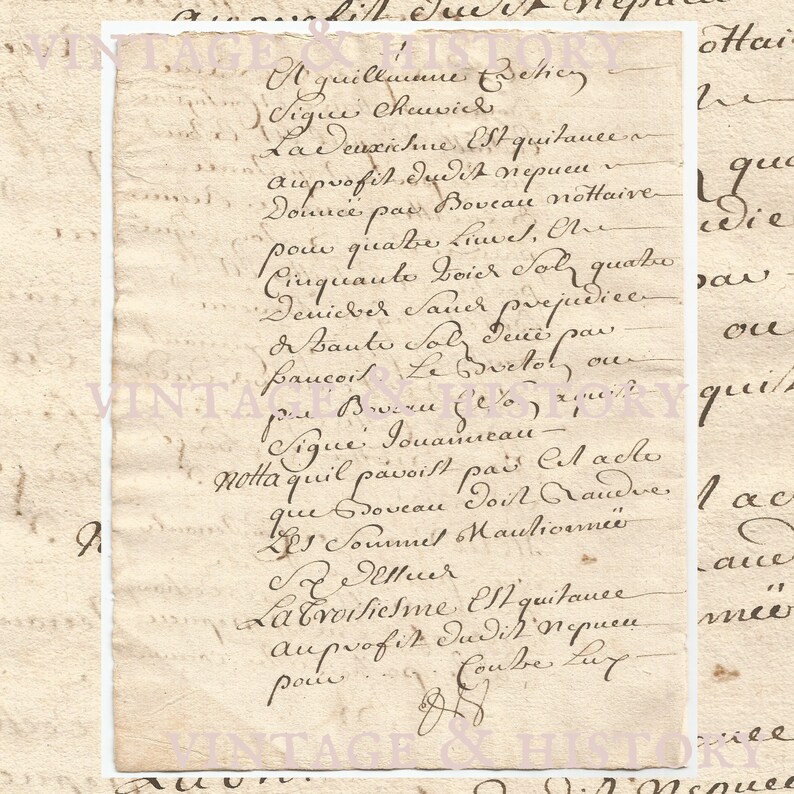 VINTAGE & HISTORY
Et guillaume Crétien
Signé Chauvier
La deuxiesme Est quitance
au profit dudit nepueu
Donnëe par Boveau nottaire
pour quatre Liures, Et
Cinquante trois Solz quatre
Deniers Sans prejudice
de trante Solz deuë par
francois Le Breton ou
par Boveau
Signé Jouanneau
notta quil paroist par Cet acte
que Boveau doit Randre
Les Sommes Mantionneë
Cy Dessus
La troisiesme Est quitance
au profit dudit nepueu
pour Contre Luy
VINTAGE & HISTORY
VINTAGE & HISTORY